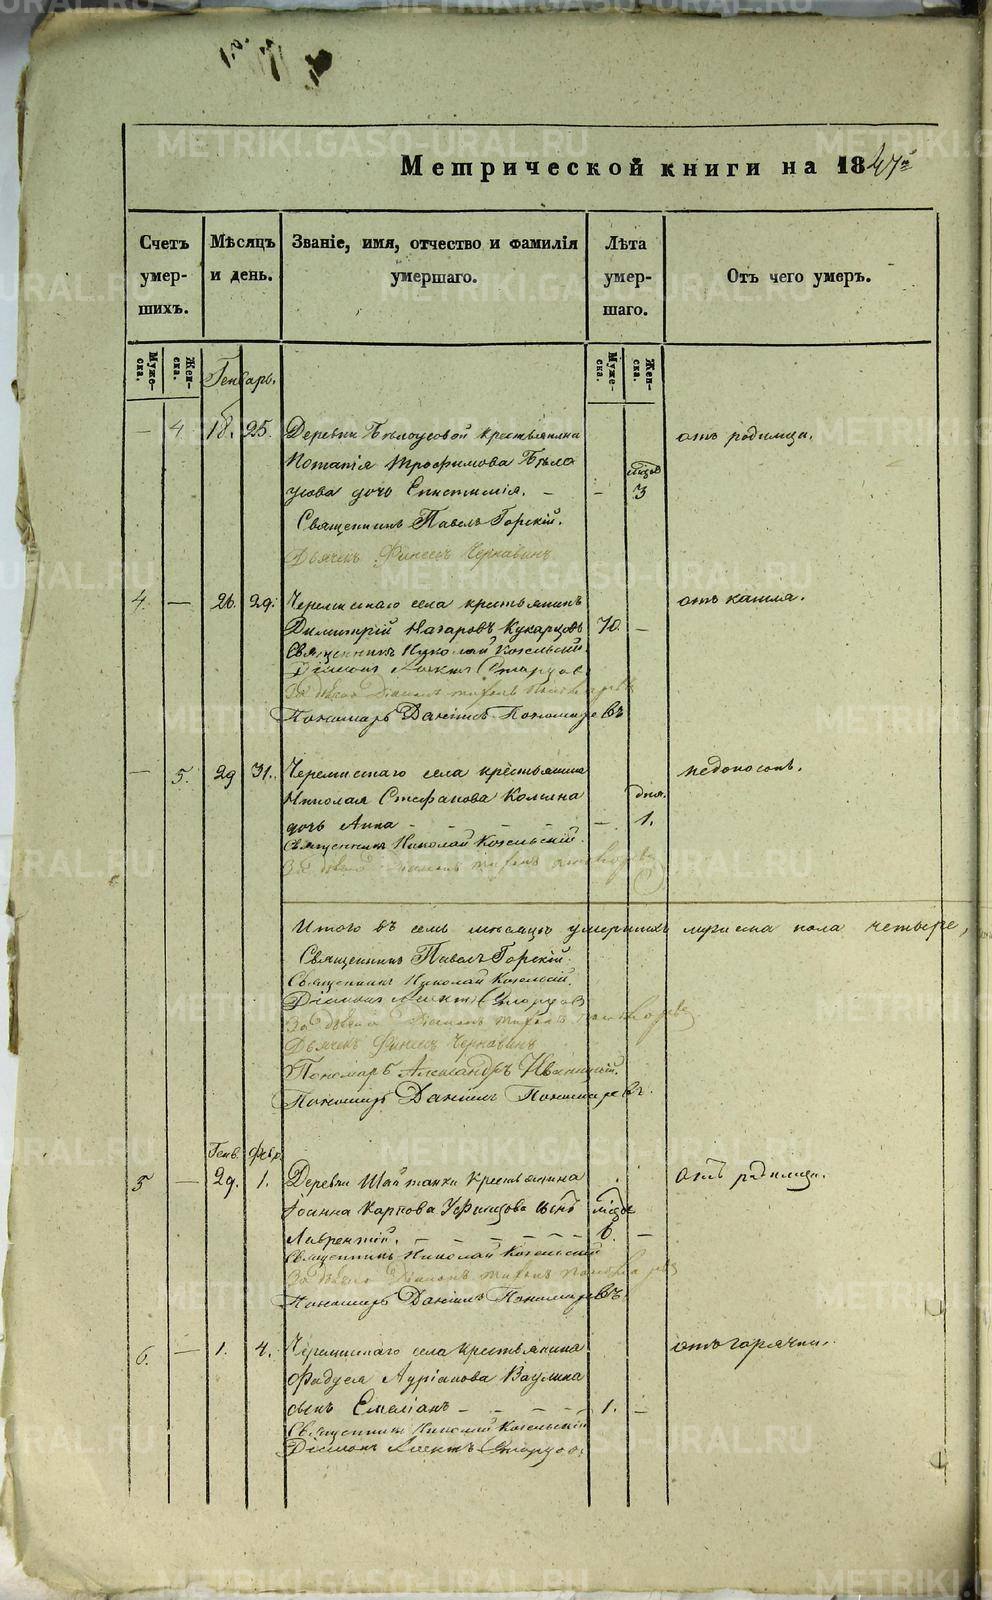 Метрической книги на 1847й
Счетъ умершихъ.
Мѣсяцъ и день.
Званіе, имя, отчество и фамилія умершаго.
Лѣта умершаго.
Отъ чего умеръ.
Мужеска.
Женска.
Мужеска.
Женска.
Генварь.
— 4. 18. 25. Деревни Бѣлоусовой крестьянина отъ родимца.
Потапія Трофимова Бѣло мѣсяц
усова дочь Епистимія. — – 3
Священникъ Павелъ Горскій.
Дьячекъ Финеесъ Чернавинъ
4. — 26. 29. Черемисскаго села крестьянинъ отъ кашля.
Димитрій Назаровъ Кукарцовъ 70. –
Священникъ Николай Козельскій.
Діаконъ Старцовъ
За дьячка Діаконъ
Пономарь Даніилъ Пономаревъ
— 5. 29 31. Черемисскаго села крестьянина недоносокъ.
Николая Стефанова Комина дня.
дочь Анна – – – – – 1.
Священникъ Николай Козельскій.
За дьячка Діаконъ
Итого въ семъ мѣсяцѣ умершихъ мужеска пола четыре,
Священникъ Павелъ Горскій.
Священникъ Николай Козельскій.
Діаконъ Старцовъ
За дьячка Діаконъ
Дьячекъ Финеесъ Чернавинъ
Пономарь Александръ
Пономарь Даніилъ Пономаревъ.
Генв. Февр.
5 — 29. 1. Деревни Шайтанки Крестьянина отъ родимца.
Іоанна Карпова Уфимцова сынъ мѣсяц
Лаврентій. – – – – – 6. –
Священникъ Николай Козельскій
За дьячка Діаконъ
Пономарь Даніилъ Пономаревъ.
6. — 1. 4. Черемисскаго села крестьянина отъ горячки.
Фадуея Ваулина
сынъ Емеліанъ – – – – 1. –
Священникъ Николай Козельскій
Діаконъ Старцовъ
METRIKI.GASO-URAL.RU